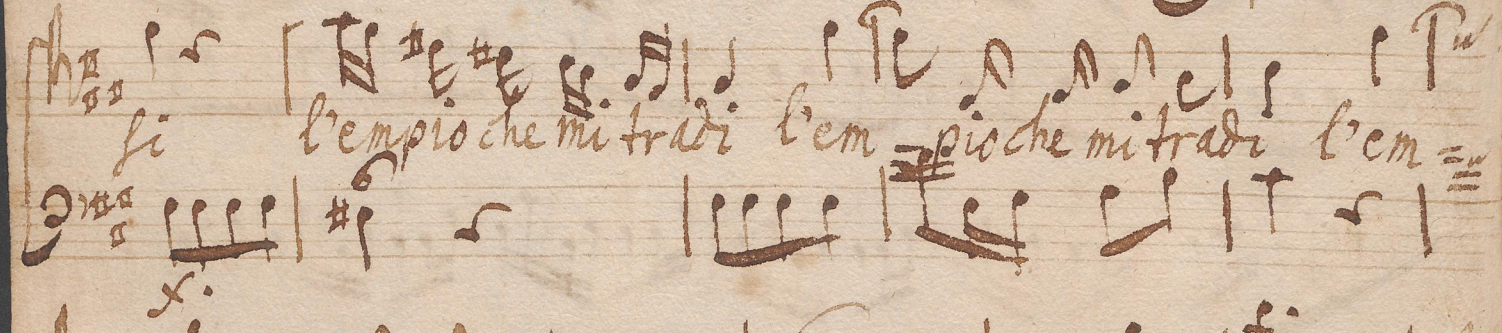 si l'empio che mi tradi l'em pio che mi tradi l'em =
6
f.
f.